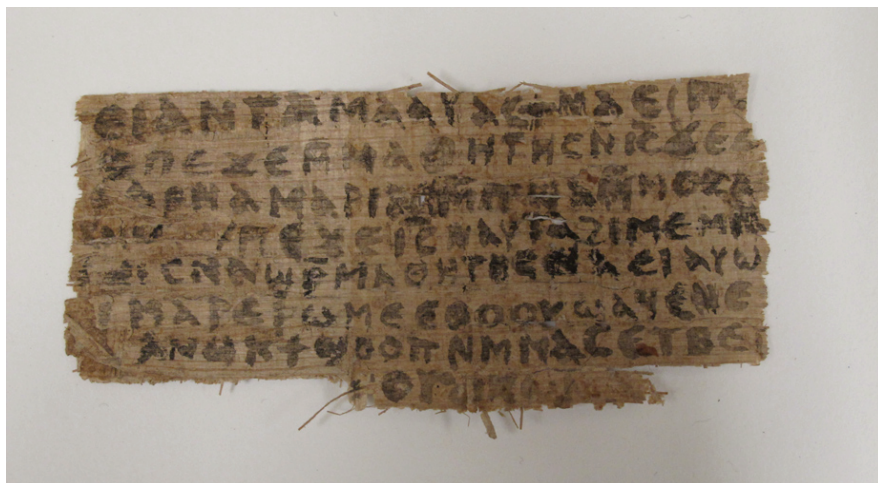 ⲉⲓ ⲁⲛ ⲧⲁⲙⲁⲁⲩ ⲁⲥϯ ⲛⲁⲉⲓ ⲡⲱ
ⲡⲉϫⲉ ⲙⲙⲁⲑⲏⲧⲏⲥ ⲛⲓⲥ ϫⲉ ⲥ
ⲁⲣⲛⲁ ⲙⲁⲣⲓⲁⲙ ⲙⲡϣⲁ ⲙⲙⲟⲥ ⲁ
ⲡⲉϫⲉ ⲓⲥ ⲛⲁⲩ ⲧⲁϩⲓⲙⲉ ⲙⲛ
ⲥⲛⲁϣⲣ ⲙⲁⲑⲏⲧⲏⲥ ⲛⲁⲉⲓ ⲁⲩⲱ
ⲓ ⲙⲁⲣⲉⲣⲱⲙⲉ ⲉⲑⲟⲟⲩ ϣⲁϥⲉ ⲛⲉ
ⲁⲛⲟⲕ ϯϣⲟⲟⲡ ⲛⲙⲙⲁⲥ ⲉⲧⲃⲉ